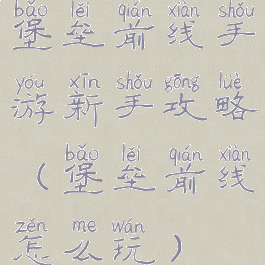 bǎo lěi qián xiàn shǒu
堡垒前线手
yóu xīn shǒu gōng lüè
游新手攻略
bǎo lěi qián xiàn
（堡垒前线
zěn me wán
怎么玩）